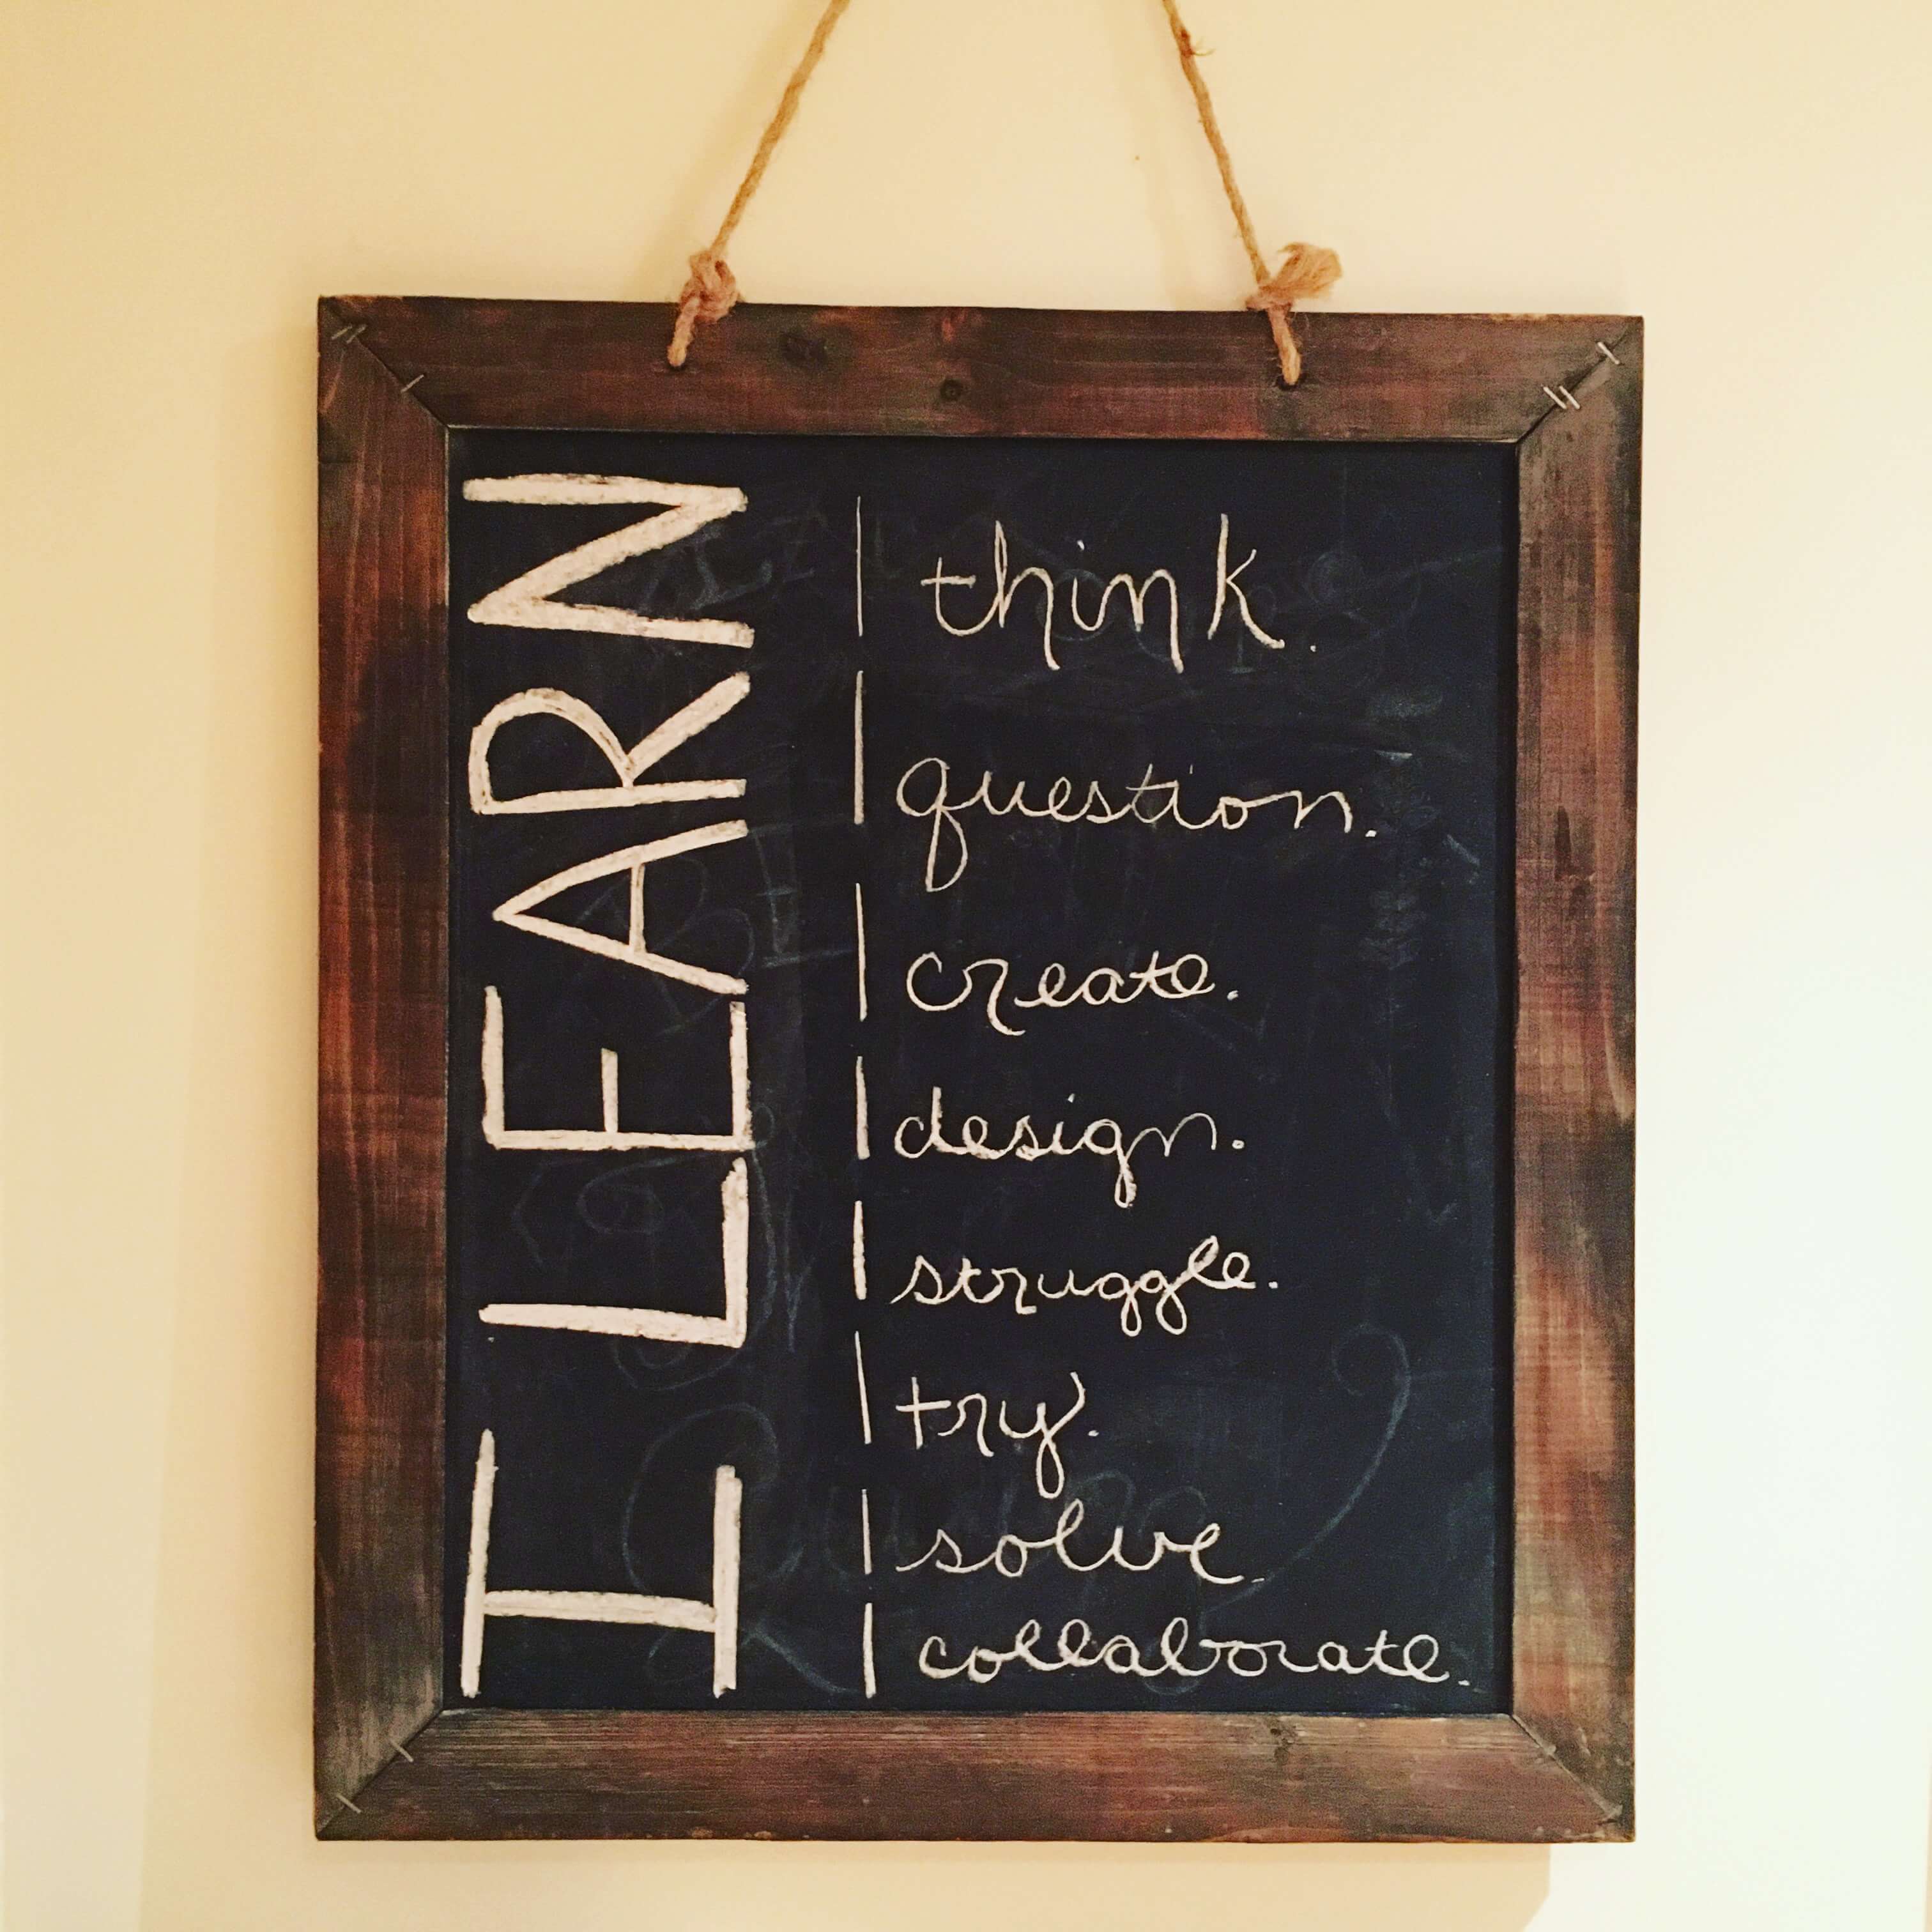 I LEARN
think.
question.
create.
design.
struggle.
try.
solve.
collaborate.